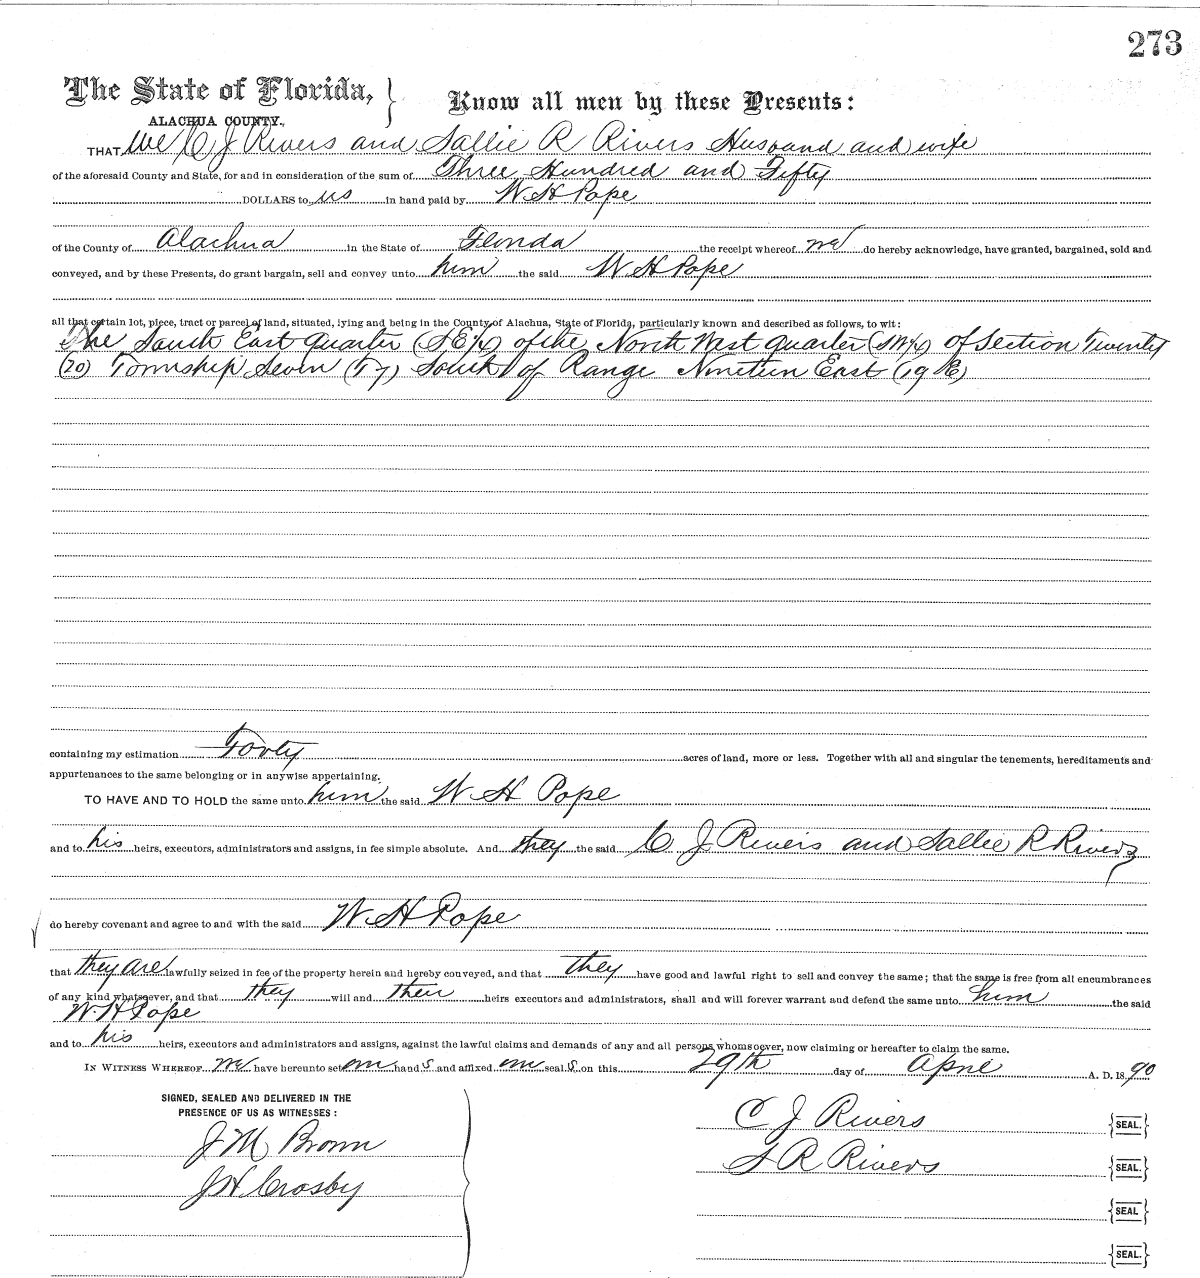 273
The State of Florida, } Know all men by these Presents:
ALACHUA COUNTY.,
THAT We C J Rivers and Sallie R Rivers Husband and wife
of the aforesaid County and State, for and in consideration of the sum of Three Hundred and Fifty
DOLLARS to us in hand paid by W H Pope
of the County of Alachua in the State of Florida the receipt whereof we do hereby acknowledge, have granted, bargained, sold and
conveyed, and by these Presents, do grant bargain, sell and convey unto him the said W H Pope
all that certain lot, piece, tract or parcel of land, situated, lying and being in the County of Alachua, State of Florida, particularly known and described as follows, to wit:
The South East Quarter (SE¼) of the North West Quarter (NW¼) of Section Twenty
(20) Township Seven (T7) South of Range Nineteen East (19 E)
containing my estimation Forty acres of land, more or less. Together with all and singular the tenements, hereditaments and
appurtenances to the same belonging or in anywise appertaining.
TO HAVE AND TO HOLD the same unto him the said W H Pope
and to his heirs, executors, administrators and assigns, in fee simple absolute. And they the said C J Rivers and Sallie R Rivers
do hereby covenant and agree to and with the said W H Pope
that they are lawfully seized in fee of the property herein and hereby conveyed, and that they have good and lawful right to sell and convey the same; that the same is free from all encumbrances
of any kind whatsoever, and that they will and their heirs executors and administrators, shall and will forever warrant and defend the same unto him the said
W. H Pope
and to his heirs, executors and administrators and assigns, against the lawful claims and demands of any and all persons whomsoever, now claiming or hereafter to claim the same.
IN WITNESS WHEREOF we have hereunto set our hand s and affixed our seal s on this 29th day of April A. D. 18 90
SIGNED, SEALED AND DELIVERED IN THE
PRESENCE OF US AS WITNESSES:
J M Brown
J H Crosby
C J Rivers {SEAL.}
S R Rivers {SEAL.}
{SEAL}
{SEAL.}